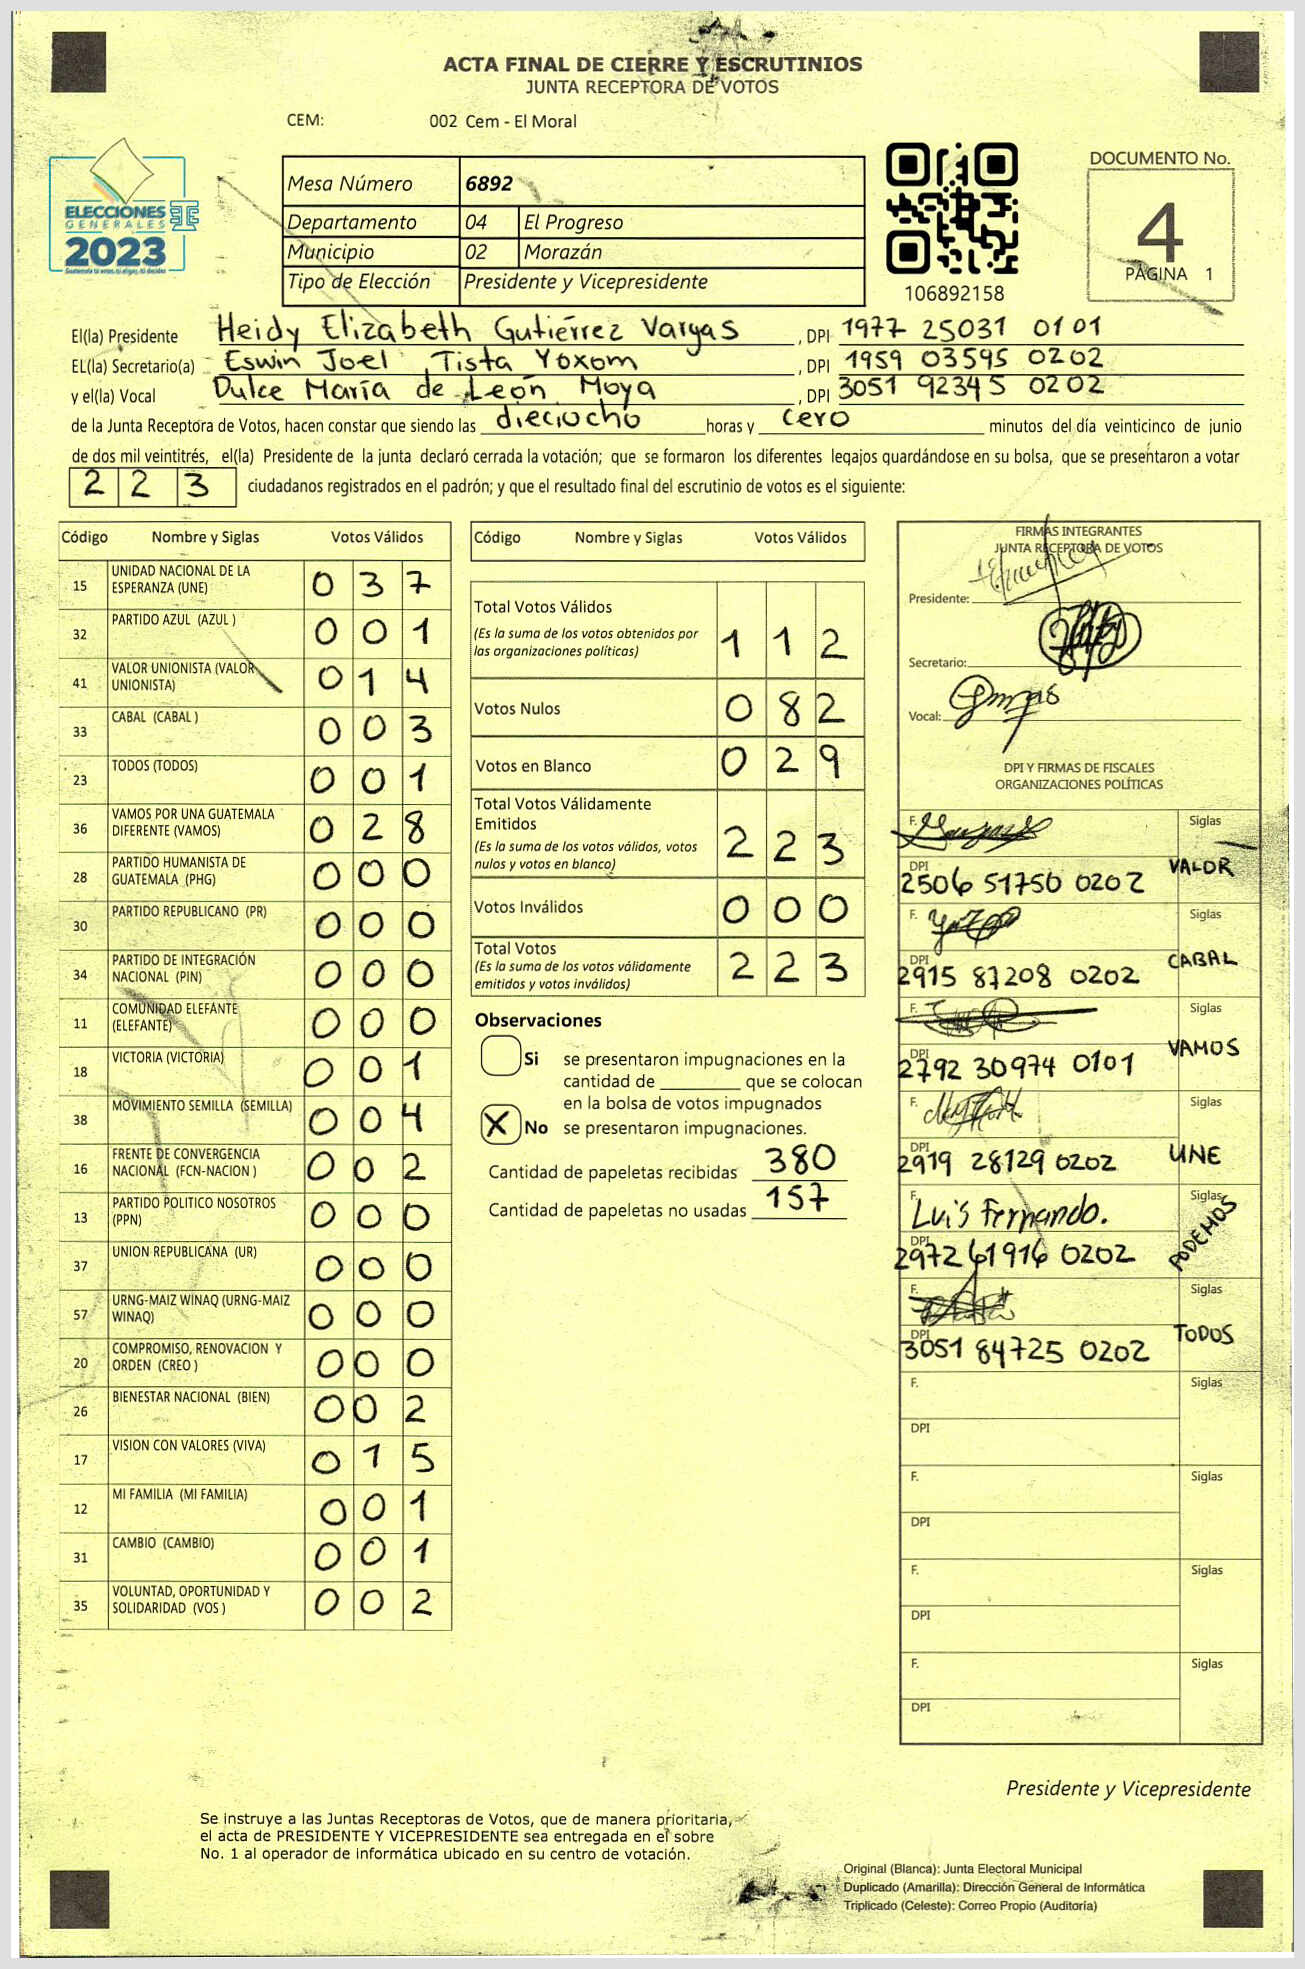 ACTA FINAL DE CIERRE Y ESCRUTINIOS
JUNTA RECEPTORA DE VOTOS
CEM: 002 Cem - El Moral
ELECCIONES
GENERALES
2023
Guatemala tú votas, tú eliges, tú decides
Mesa Número 6892
Departamento 04 El Progreso
Municipio 02 Morazán
Tipo de Elección Presidente y Vicepresidente
106892158
DOCUMENTO No.
4
PÁGINA 1
El(la) Presidente Heidy Elizabeth Gutiérrez Vargas, DPI 1977 25031 0101
EL(la) Secretario(a) Eswin Joel Tista Yoxom, DPI 1959 03595 0202
y el(la) Vocal Dulce María de León Moya, DPI 3051 92345 0202
de la Junta Receptora de Votos, hacen constar que siendo las dieciocho horas y cero minutos del día veinticinco de junio
de dos mil veintitrés, el(la) Presidente de la junta declaró cerrada la votación; que se formaron los diferentes legajos guardándose en su bolsa, que se presentaron a votar
223 ciudadanos registrados en el padrón; y que el resultado final del escrutinio de votos es el siguiente:
Código Nombre y Siglas Votos Válidos
15 UNIDAD NACIONAL DE LA ESPERANZA (UNE) 037
32 PARTIDO AZUL (AZUL ) 001
41 VALOR UNIONISTA (VALOR UNIONISTA) 014
33 CABAL (CABAL ) 003
23 TODOS (TODOS) 001
36 VAMOS POR UNA GUATEMALA DIFERENTE (VAMOS) 028
28 PARTIDO HUMANISTA DE GUATEMALA (PHG) 000
30 PARTIDO REPUBLICANO (PR) 000
34 PARTIDO DE INTEGRACIÓN NACIONAL (PIN) 000
11 COMUNIDAD ELEFANTE (ELEFANTE) 000
18 VICTORIA (VICTORIA) 001
38 MOVIMIENTO SEMILLA (SEMILLA) 004
16 FRENTE DE CONVERGENCIA NACIONAL (FCN-NACION ) 002
13 PARTIDO POLITICO NOSOTROS (PPN) 000
37 UNION REPUBLICANA (UR) 000
57 URNG-MAIZ WINAQ (URNG-MAIZ WINAQ) 000
20 COMPROMISO, RENOVACION Y ORDEN (CREO ) 000
26 BIENESTAR NACIONAL (BIEN) 002
17 VISION CON VALORES (VIVA) 015
12 MI FAMILIA (MI FAMILIA) 001
31 CAMBIO (CAMBIO) 001
35 VOLUNTAD, OPORTUNIDAD Y SOLIDARIDAD (VOS ) 002
Código Nombre y Siglas Votos Válidos
Total Votos Válidos
(Es la suma de los votos obtenidos por las organizaciones políticas) 112
Votos Nulos 082
Votos en Blanco 029
Total Votos Válidamente Emitidos
(Es la suma de los votos válidos, votos nulos y votos en blanco) 223
Votos Inválidos 000
Total Votos
(Es la suma de los votos válidamente emitidos y votos inválidos) 223
Observaciones
Si se presentaron impugnaciones en la
cantidad de ________ que se colocan
en la bolsa de votos impugnados
X No se presentaron impugnaciones.
Cantidad de papeletas recibidas 380
Cantidad de papeletas no usadas 157
FIRMAS INTEGRANTES
JUNTA RECEPTORA DE VOTOS
Presidente:
Secretario:
Vocal:
DPI Y FIRMAS DE FISCALES
ORGANIZACIONES POLÍTICAS
F. Siglas
DPI 2506 51750 0202 VALOR
F. Siglas
DPI 2915 87208 0202 CABAL
F. Siglas
DPI 2792 30974 0101 VAMOS
F. Siglas
DPI 2919 28129 0202 UNE
F. Luis Fernando. Siglas
DPI 2972 61916 0202 PODEMOS
F. Siglas
DPI 3051 84725 0202 TODOS
F. Siglas
DPI
F. Siglas
DPI
F. Siglas
DPI
F. Siglas
DPI
Presidente y Vicepresidente
Se instruye a las Juntas Receptoras de Votos, que de manera prioritaria,
el acta de PRESIDENTE Y VICEPRESIDENTE sea entregada en el sobre
No. 1 al operador de informática ubicado en su centro de votación.
Original (Blanca): Junta Electoral Municipal
Duplicado (Amarilla): Dirección General de Informática
Triplicado (Celeste): Correo Propio (Auditoría)